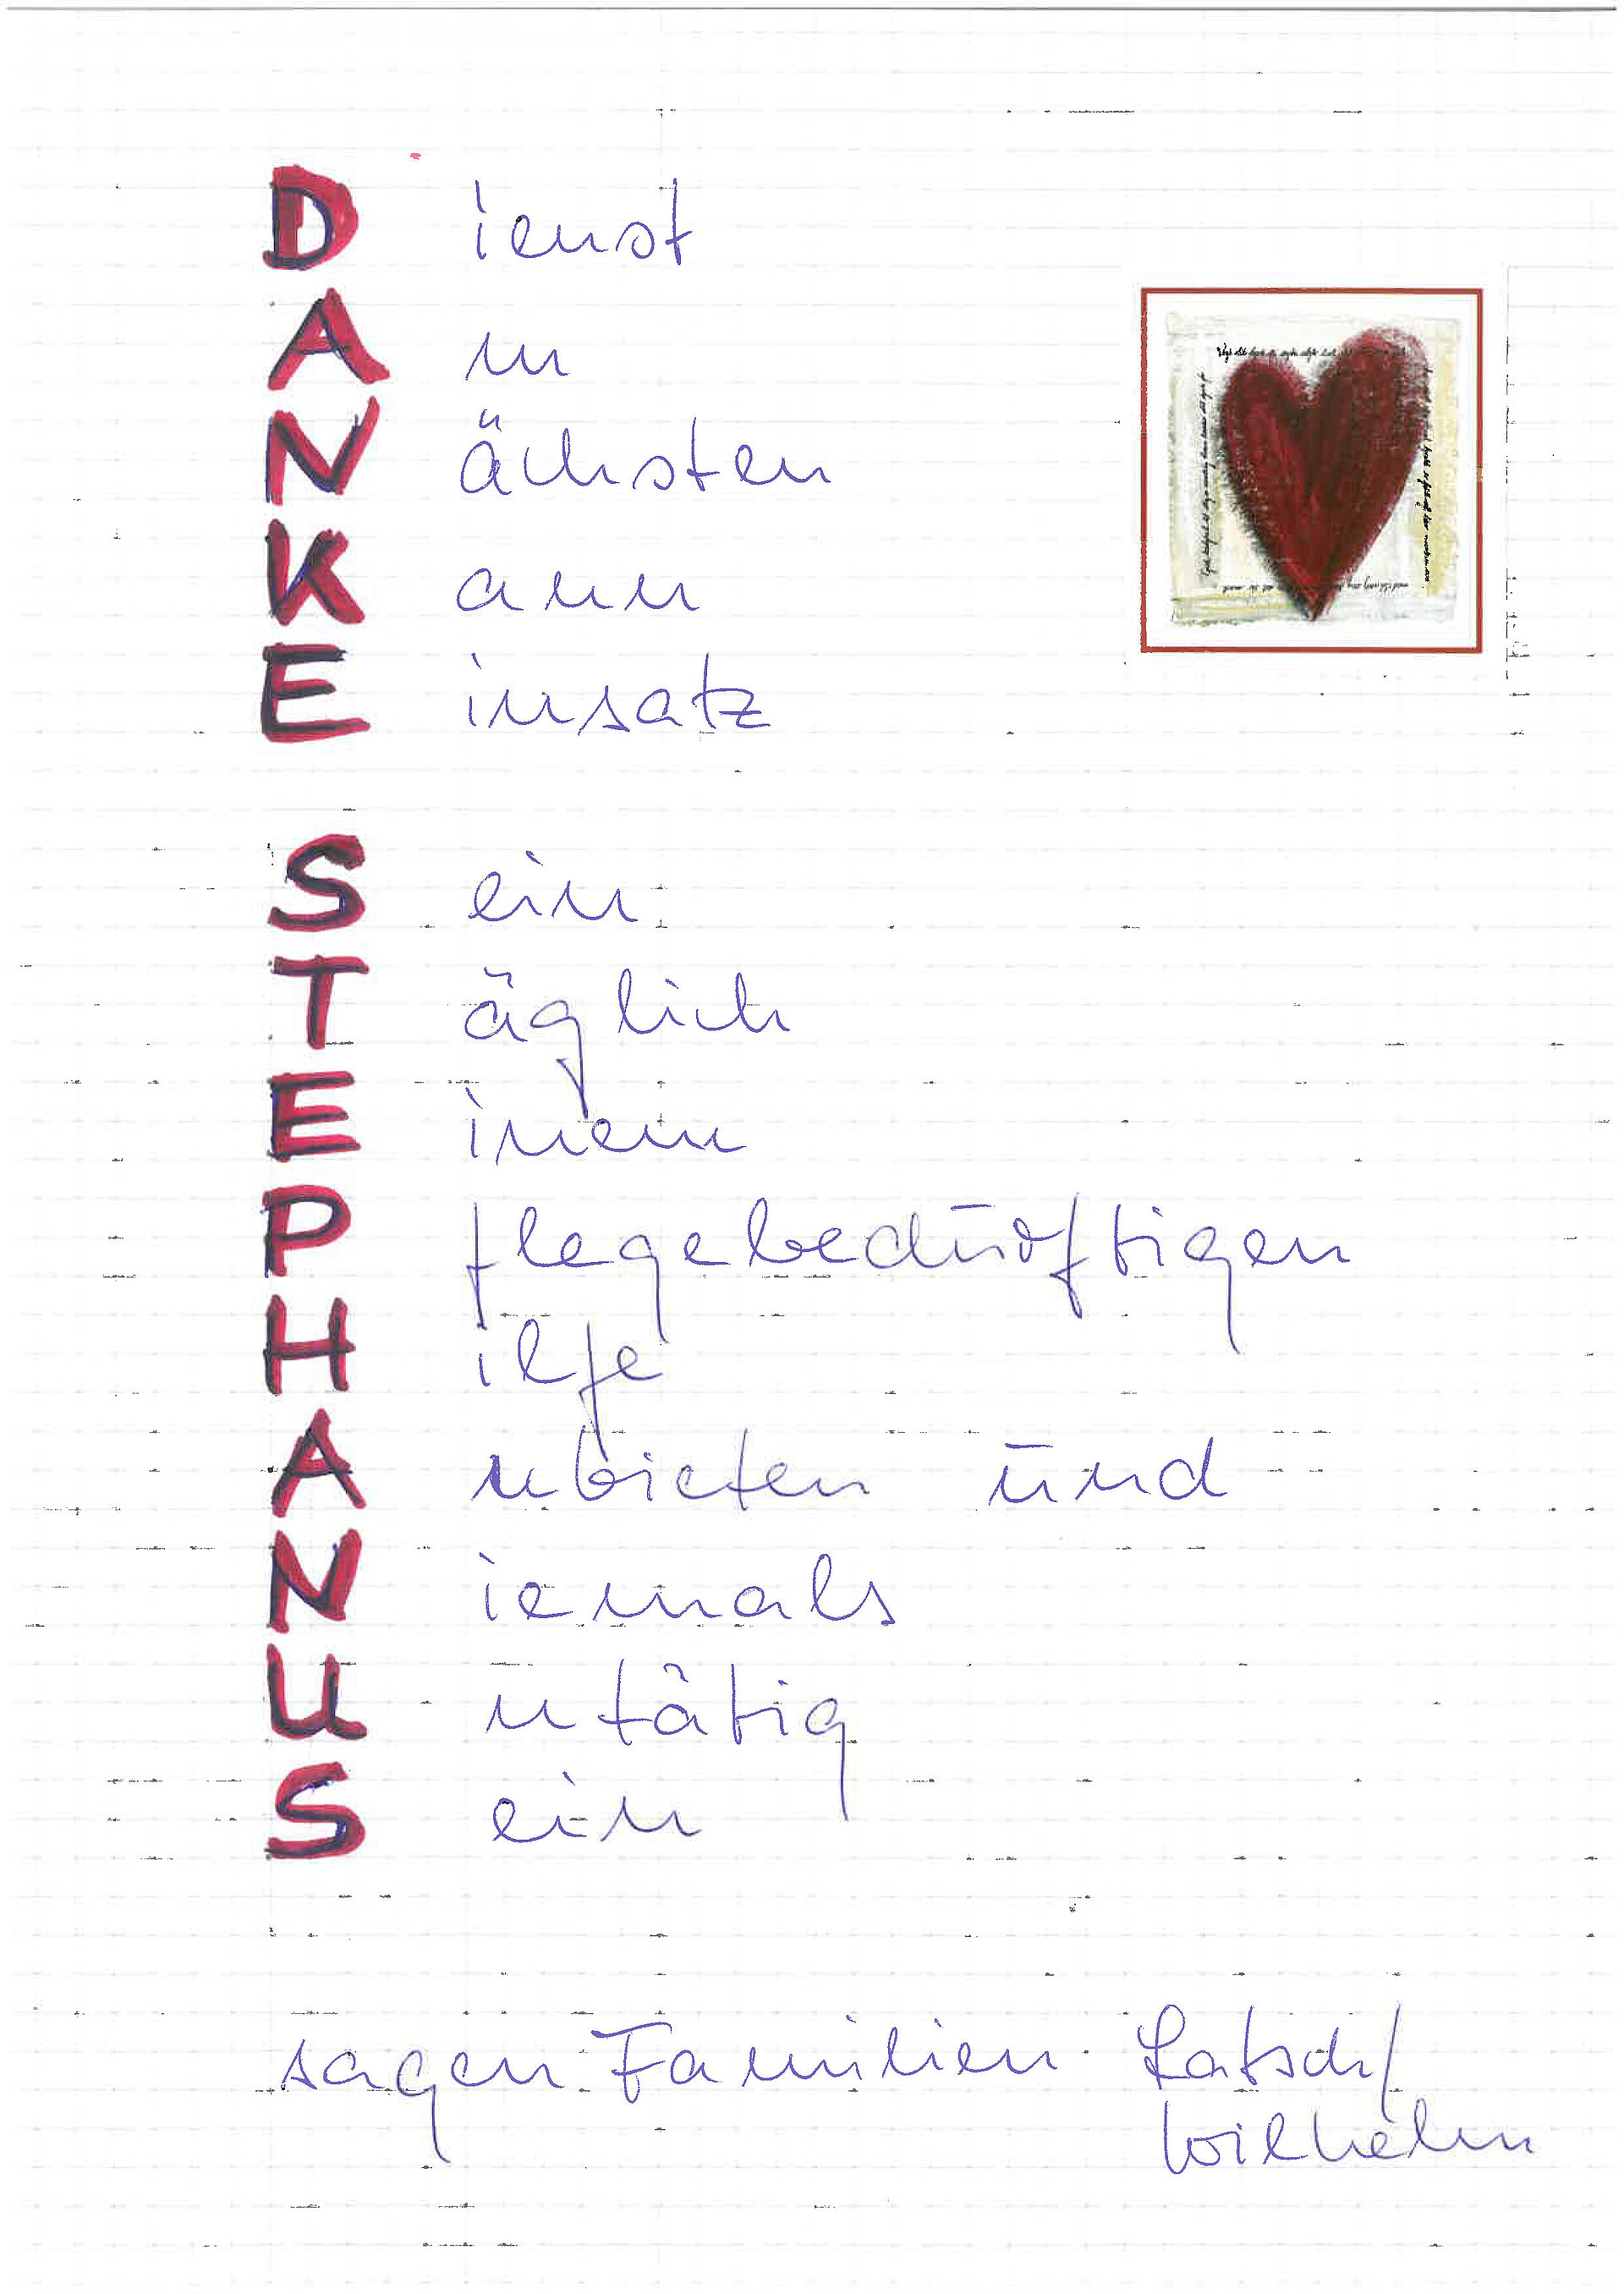 D ienst
A m
N ächsten
K ann
E insatz
S ein
T äglich
E inem
P flegebedürftigen
H ilfe
A nbieten und
N iemals
U ntätig
S ein
sagen Familien Latsch/
Wilhelm